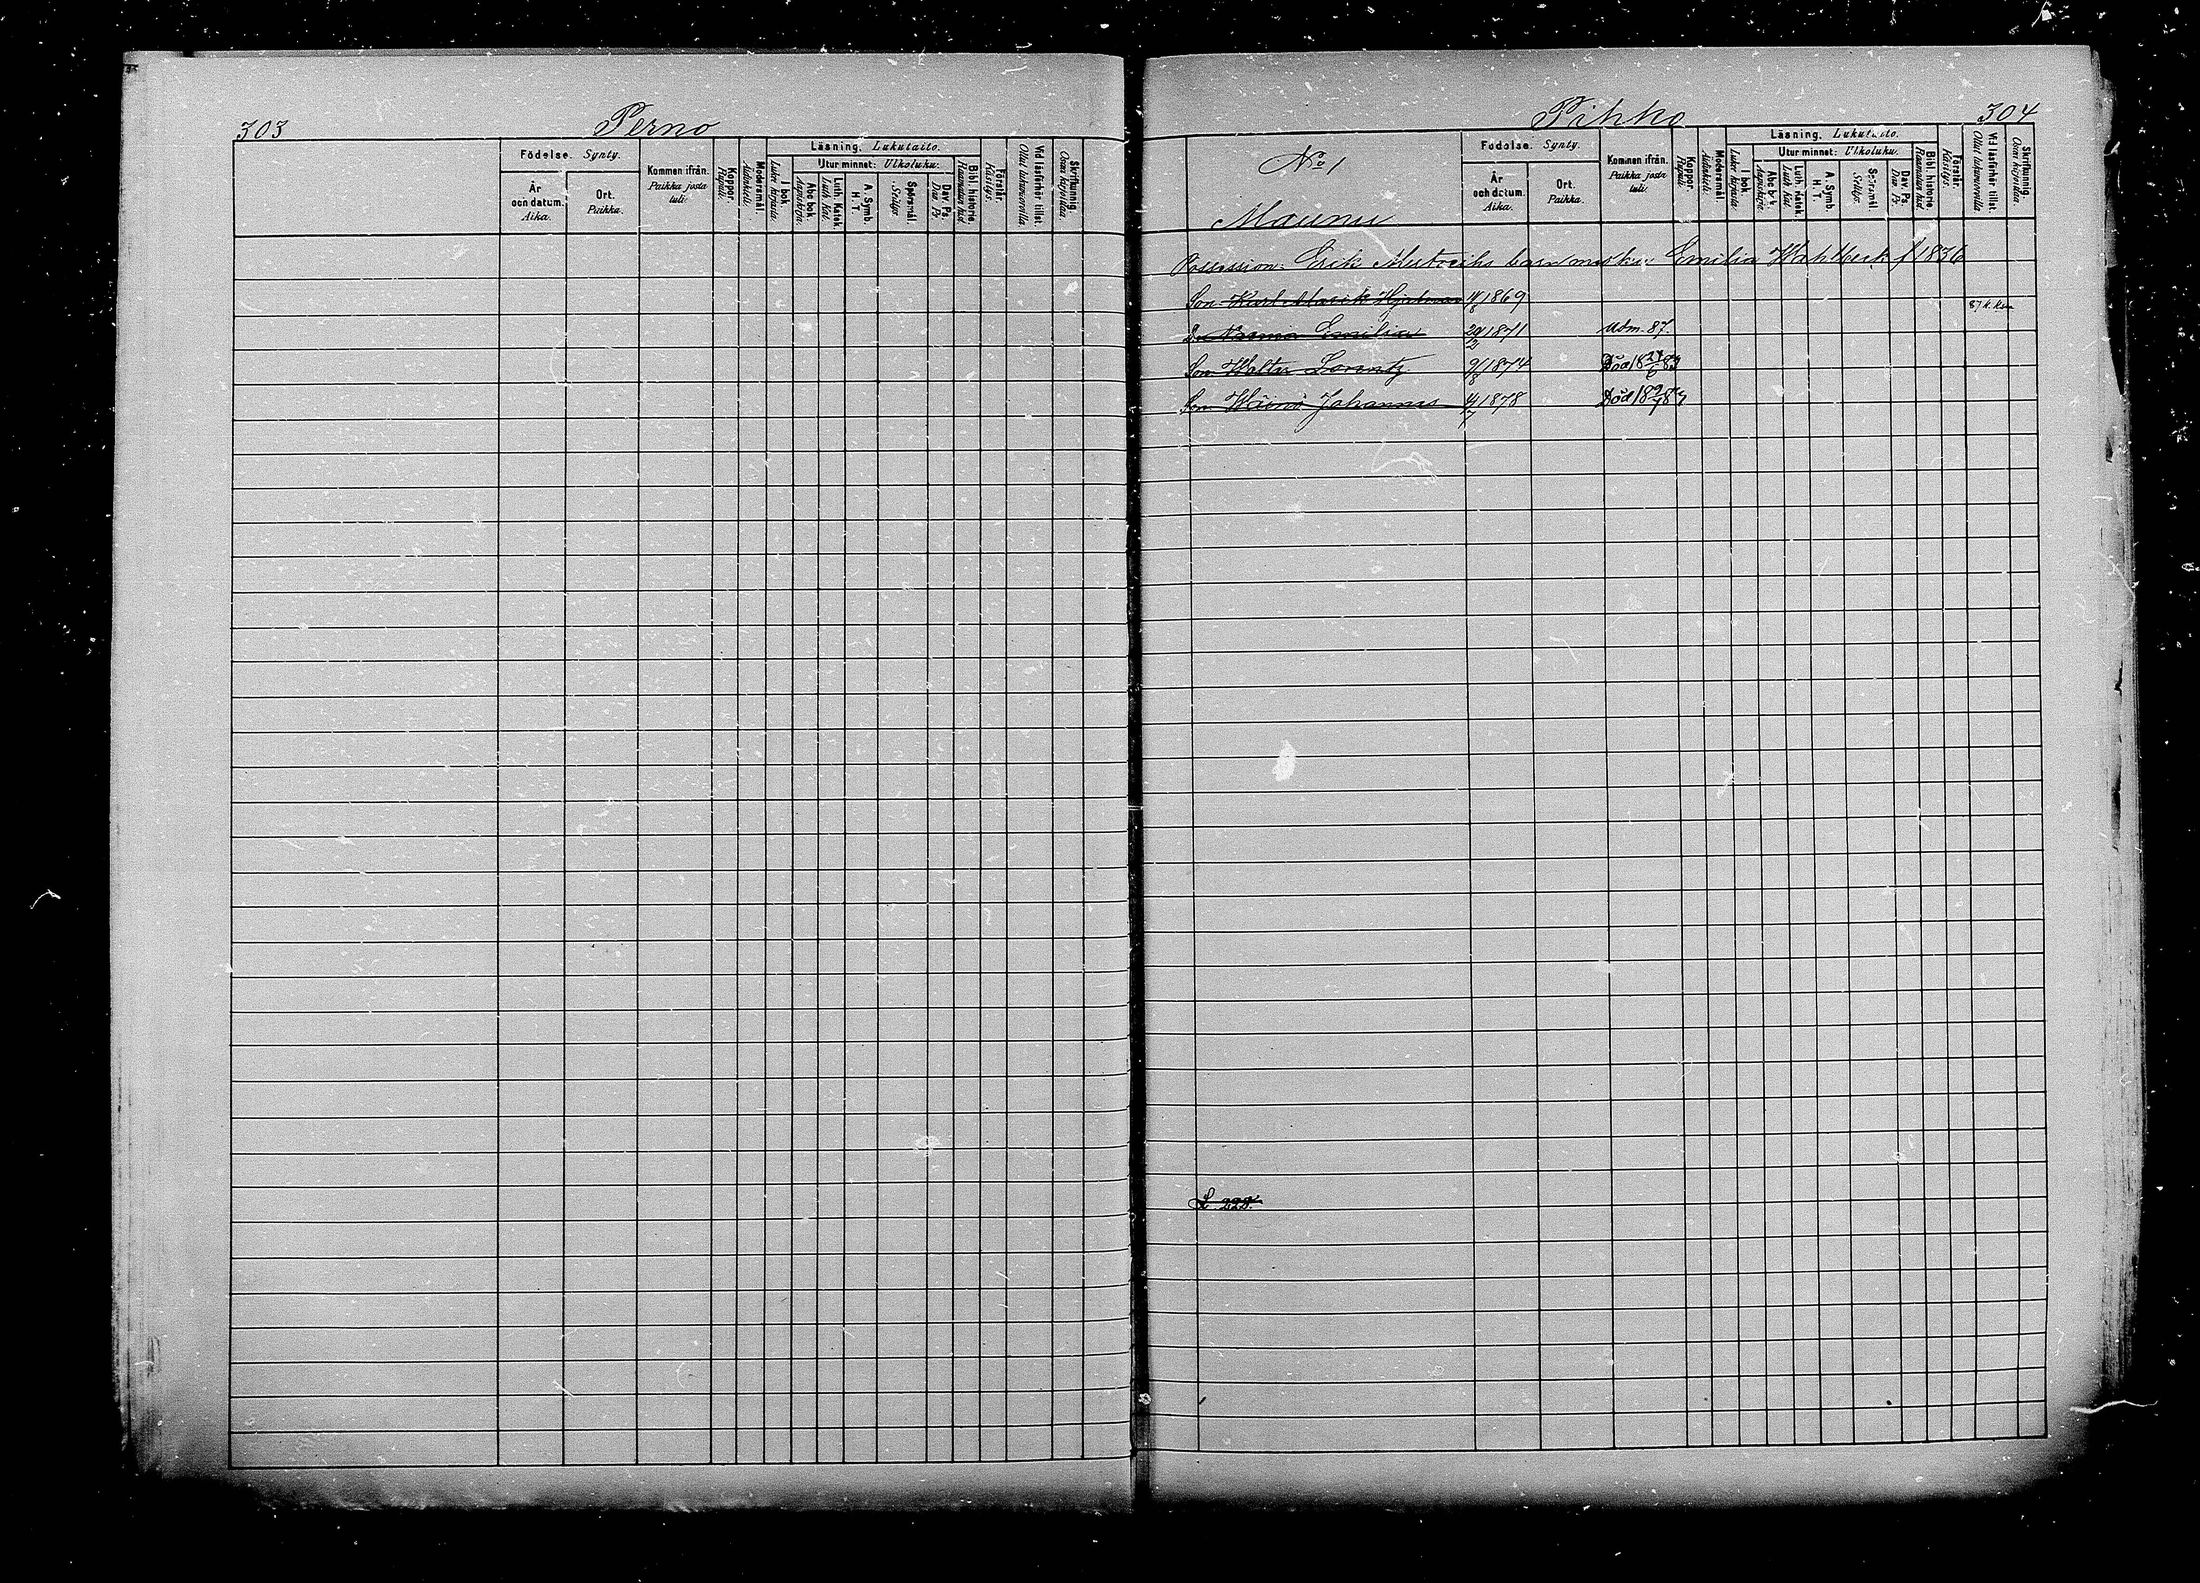 303
Perno
Födelse. Synty.
År och datum. Aika.
Ort. Paikka.
Kommen ifrån. Paikka josta tuli.
Koppor. Rupuli.
Modersmål. Äidinkieli.
Läsning. Lukutaito.
I bok. Lukee kirjasta.
Utur minnet: Ulkoluku.
Abc bok. Aapiskirja.
Luth. Katek. Luth. Kat.
A. Symb. H. T.
Spörsmål. Selitys.
Dav. Ps. Dav. Ps.
Bibl. historie. Raamatun hist.
Förstår. Käsitys.
Vid läsförhör tillst. Ollut lukuvuorolla
Skrifkunnig. Osaa kirjoittaa.
Pihko
304
No 1
Maunu
Födelse. Synty.
År och datum. Aika.
Ort. Paikka.
Kommen ifrån. Paikka josta tuli.
Koppor. Rupuli.
Modersmål. Äidinkieli.
Läsning. Lukutaito.
I bok. Lukee kirjasta.
Utur minnet: Ulkoluku.
Abc bok. Aapiskirja.
Luth. Katek. Luth. Kat.
A. Symb. H. T.
Spörsmål. Selitys.
Dav. Ps. Dav. Ps.
Bibl. historie. Raamatun hist.
Förstår. Käsitys.
Vid läsförhör tillst. Ollut lukuvuorolla
Skrifkunnig. Osaa kirjoittaa.
Possession. Erik barnmorska Emilia Wahlberk f 1836
Son Karl Hjalmar 1869 87
D. Emilia 1871 Adm. 87.
Son Walter Lorentz 9/8 1874 Död
Son Wäinö Johannes 1878 Död
L 228.